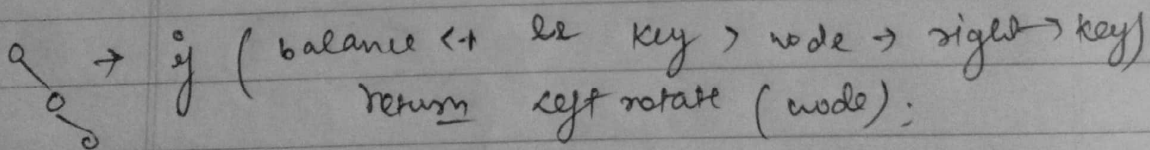 → if ( balance <+ && key > node → right → key)
return left rotate (node);